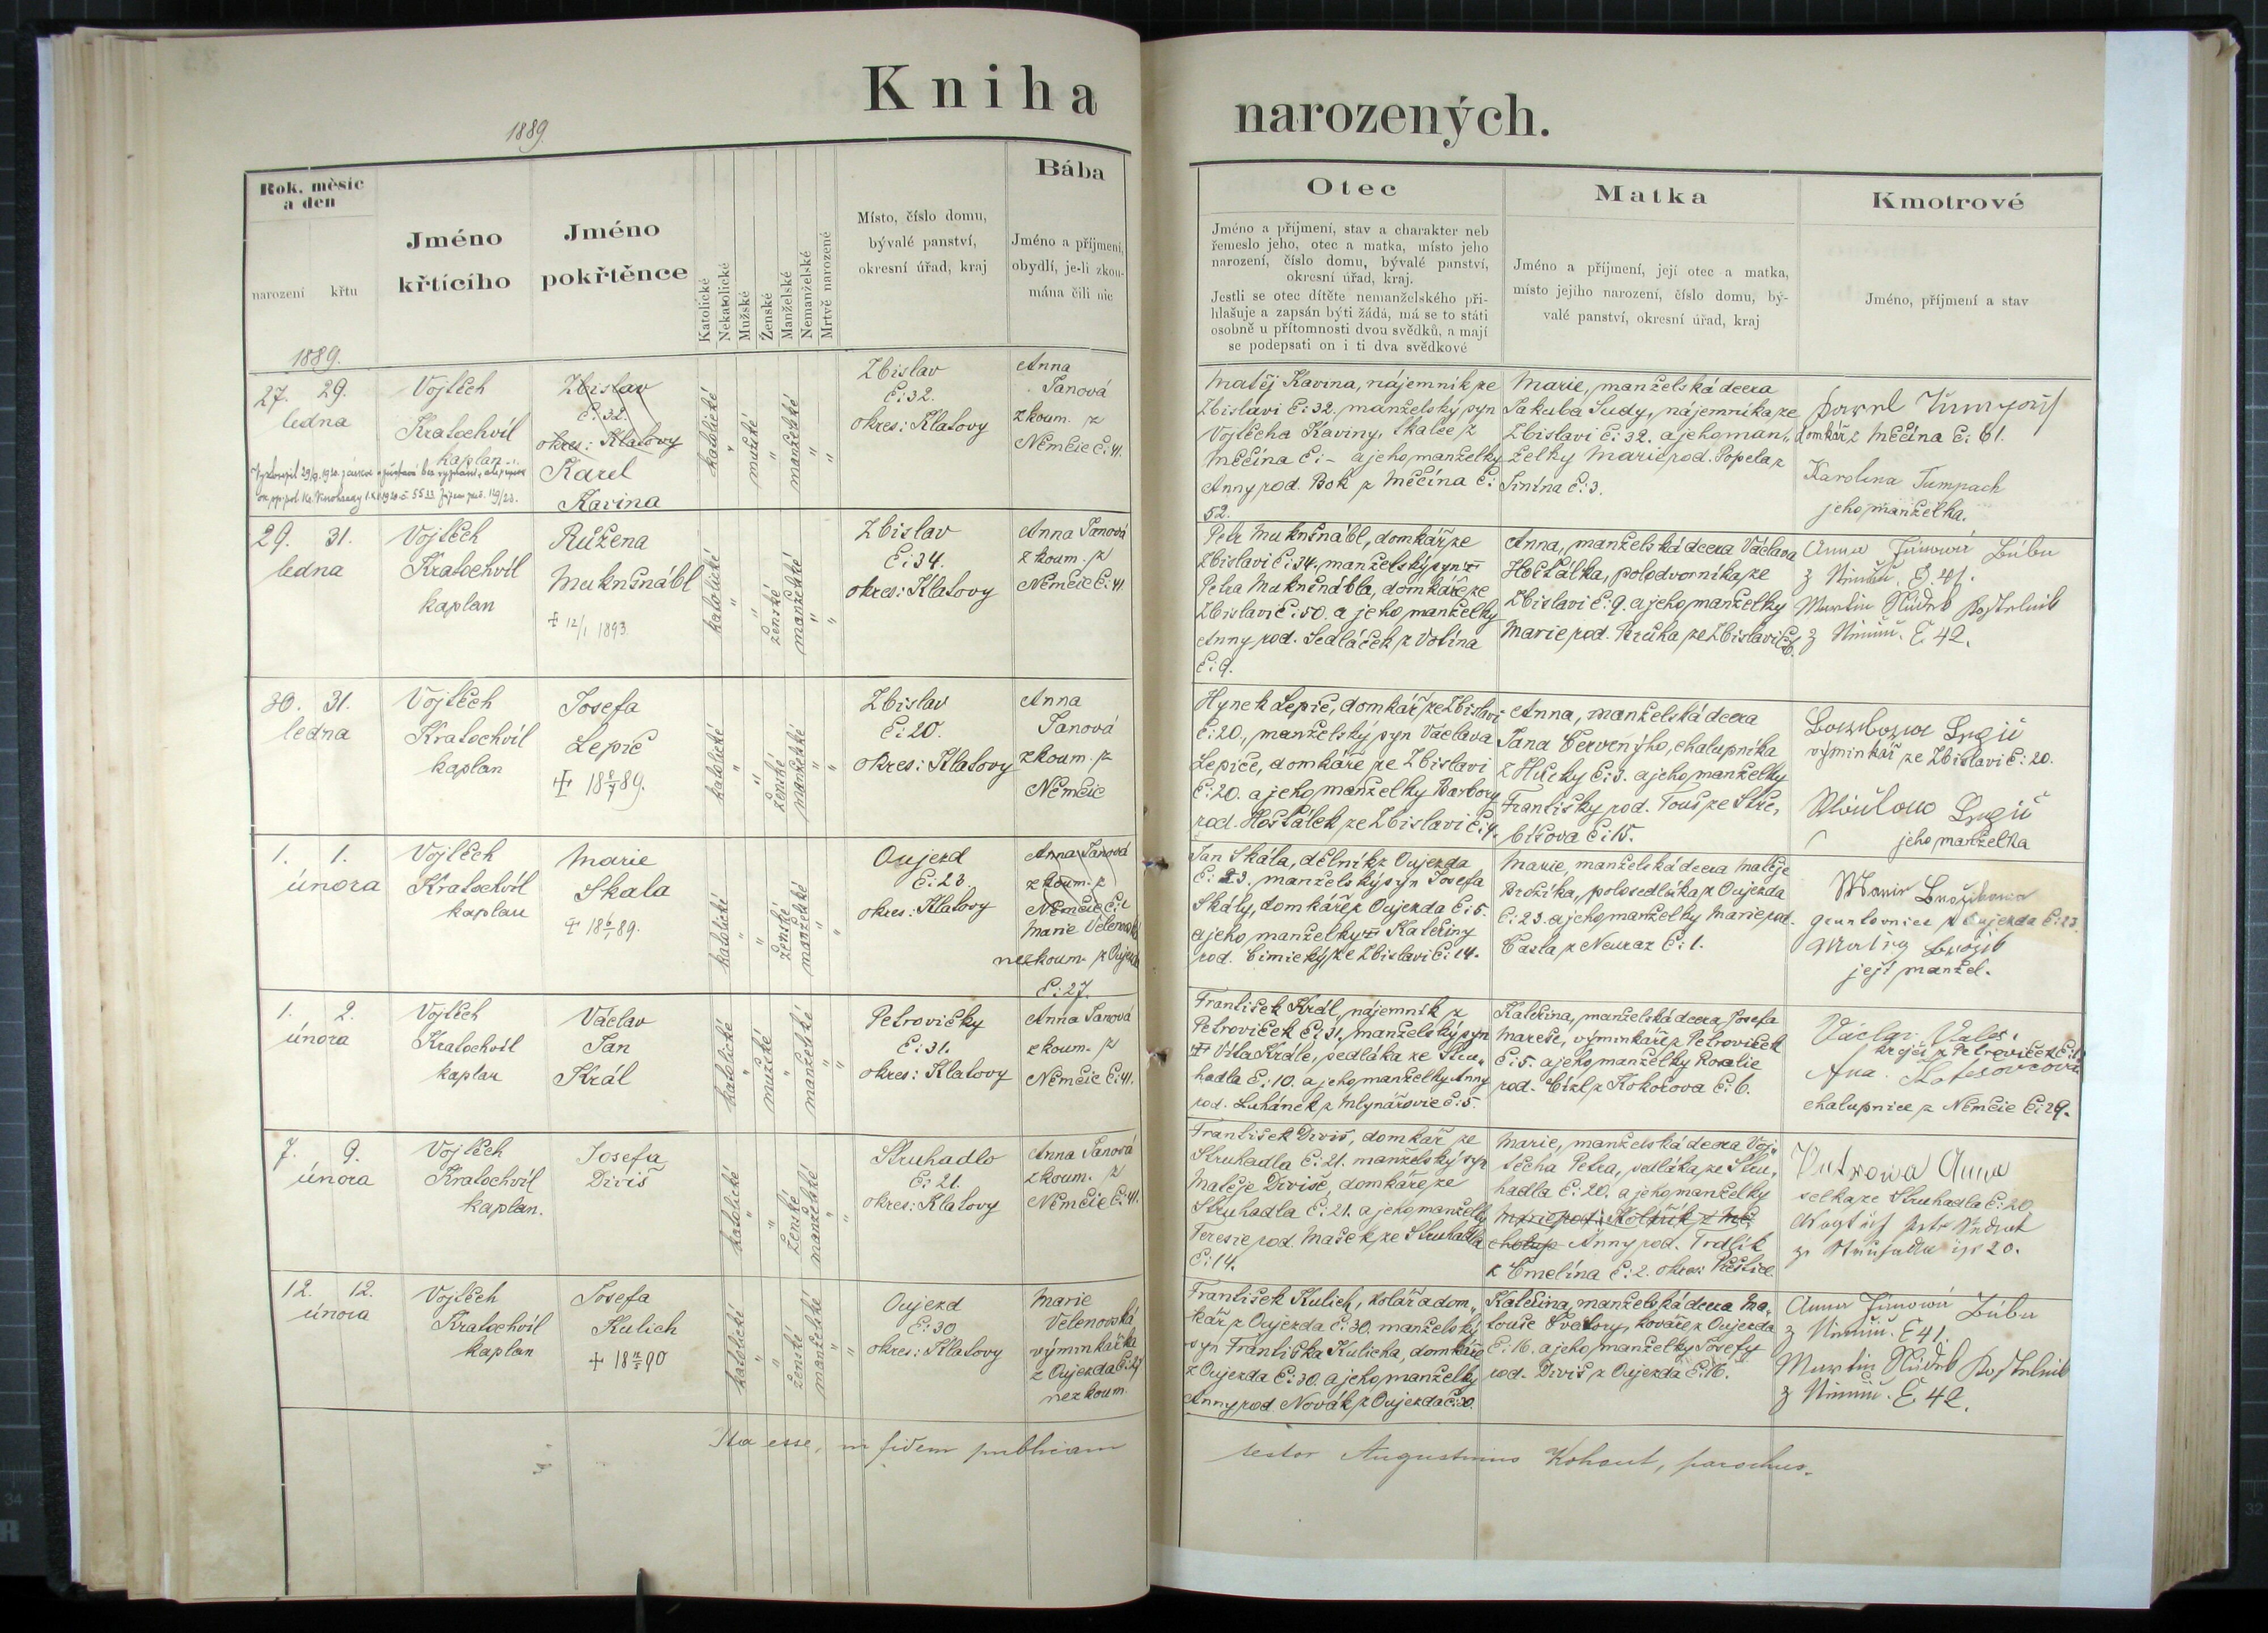 Kniha
narozených.
1889.
Rok, měsíc
a den
narození
křtu
Jméno
křtícího
Jméno
pokřtěnce
Katolické
Nekatolické
Mužské
Ženské
Manželské
Nemanželské
Mrtvě narozené
Místo, číslo domu,
bývalé panství,
okresní úřad, kraj
Bába
Jméno a příjmení,
obydlí, je-li zkou-
mána čili nic
Otec
Jméno a příjmení, stav a charakter neb
řemeslo jeho, otec a matka, místo jeho
narození, číslo domu, bývalé panství,
okresní úřad, kraj.
Jestli se otec dítěte nemanželského při-
hlašuje a zapsán býti žádá, má se to státi
osobně u přítomnosti dvou svědků, a mají
se podepsati on i ti dva svědkové
Matka
Jméno a příjmení, její otec a matka,
místo jejího narození, číslo domu, bý-
valé panství, okresní úřad, kraj
Kmotrové
Jméno, příjmení a stav
1889.
27. 29.
ledna
Vojtěch
Kratochvíl
kaplan
Zbislav
č: 32.
okres: Klatovy
Karel
Kavina
katolické
"
mužské
"
manželské
"
"
Zbislav
č: 32.
okres: Klatovy
Anna
Janová
zkoum. z
Němčic č: 41.
Matěj Kavina, nájemník ze
Zbislavi č: 32. manželský syn
Vojtěcha Kaviny, tkalce z
Měčína č: – a jeho manželky
Anny rod. Bok z Měčína č:
52.
Marie, manželská dcera
Jakuba Sudy, nájemníka ze
Zbislavi č: 32. a jeho man„
želky Marie rod. Popela z
Tinína č: 3.
domkář z Měčína č: 61.
Karolina Tumpach
jeho manželka.
29. 31.
ledna
Vojtěch
Kratochvíl
kaplan
Růžena
Muknšnábl
+ 12/1 1893.
katolické
"
"
ženské
manželské
"
"
Zbislav
č: 34.
okres: Klatovy
Anna Janová
zkoum. z
Němčic č: 41.
Petr Muknšnábl, domkář ze
Zbislavi č: 34. manželský syn
Petra Muknšnábla, domkáře ze
Zbislavi č: 50. a jeho manželky
Anny rod. Sedláček z Volína
č: 9.
Anna, manželská dcera Václava
Hošťálka, polodvorníka ze
Zbislavi č: 9. a jeho manželky
Marie rod. Brůha ze Zbislavi č:
Anna Janowá Bába
z Němčic. č. 41.
z Němčic. č 42.
30. 31.
ledna
Vojtěch
Kratochvíl
kaplan
Josefa
Lepič
katolické
"
"
ženské
manželské
"
"
Zbislav
č: 20.
okres: Klatovy
Anna
Janová
zkoum. z
Němčic
Hynek Lepič, domkář ze Zbislavi
č: 20., manželský syn Václava
Lepiče, domkáře ze Zbislavi
č: 20. a jeho manželky Barbory
rod. Hošťálek ze Zbislavi č: 9.
Anna, manželská dcera
Jana Červenýho, chalupníka
z Hůrky č: 3. a jeho manželky
Františky rod. Touš ze Stře„
bišova č: 15.
výminkář ze Zbislavi č: 20.
jeho manželka
1. 1.
února
Vojtěch
Kratochvíl
kaplan
Marie
Skala
katolické
"
"
ženské
manželské
"
"
Oujezd
č: 23.
okres: Klatovy
Anna Janová
zkoum. z
Němčic č:
Marie Velenovská
nezkoum. z Oujezda
č: 27.
Jan Skála, dělník z Oujezda
č: 23. manželský syn Josefa
Skály, domkáře z Oujezda č: 5.
a jeho manželky Kateřiny
rod. Cimický ze Zbislavi č: 14.
Marie, manželská dcera Matěje
Brožíka, polosedláka z Oujezda
č: 23. a jeho manželky Marie rod.
Casla z Neuraz č: 1.
gruntovnice z Oujezda č: 23.
její manžel.
1. 2.
února
Vojtěch
Kratochvíl
kaplan
Václav
Jan
Král
katolické
"
mužské
"
manželské
"
"
Petrovičky
č: 31.
okres: Klatovy
Anna Janová
zkoum. z
Němčic č: 41.
František Král, nájemník z
Petroviček č: 31. manželský syn
Víta Krále, sedláka ze Stru„
hadla č: 10. a jeho manželky Anny
rod. Luhánek z Mlynářovic č: 5.
Kateřina, manželská dcera Josefa
Mareše, výminkáře z Petroviček
č: 5. a jeho manželky Rosalie
rod. Cízl z Kokořova č: 6.
krejčí z Petroviček č:
chalupnice z Němčic č: 29.
7. 9.
února
Vojtěch
Kratochvíl
kaplan.
Josefa
Diviš
katolické
"
"
ženské
manželské
"
"
Struhadlo
č: 21.
okres: Klatovy
Anna Janová
zkoum. z
Němčic č: 41.
František Diviš, domkář ze
Struhadla č: 21. manželský syn
Matěje Diviše, domkáře ze
Struhadla č: 21. a jeho manželky
Teresie rod. Mašek ze Struhadla
č: 14.
Marie, manželská dcera Voj„
těcha Petra, sedláka ze Stru„
hadla č: 20. a jeho manželky
Anny rod. Trdlík
z Cmelína č: 2. okres: Přeštice.
selka ze Struhadla č: 20.
12. 12.
února
Vojtěch
Kratochvíl
kaplan
Josefa
Kulich
katolické
"
"
ženské
manželské
"
"
Oujezd
č: 30
okres: Klatovy
Marie
Velenovská,
výminkářka
z Oujezda č: 27
nezkoum.
František Kulich, kolář a dom„
kář z Oujezda č: 30. manželský
syn Františka Kulicha, domkáře
z Oujezda č: 30. a jeho manželky
Anny rod. Novák z Oujezda č: 30.
Kateřina, manželská dcera Ma„
touše Svátory, kováře z Oujezda
č: 16. a jeho manželky Josefy
rod. Diviš z Oujezda č: 16.
Anna Janowá Bába
z Němčic. č 41.
z Němčic. č 42.
Ita esse, in fidem publicam
testor Augustinus Kohout, parochus.